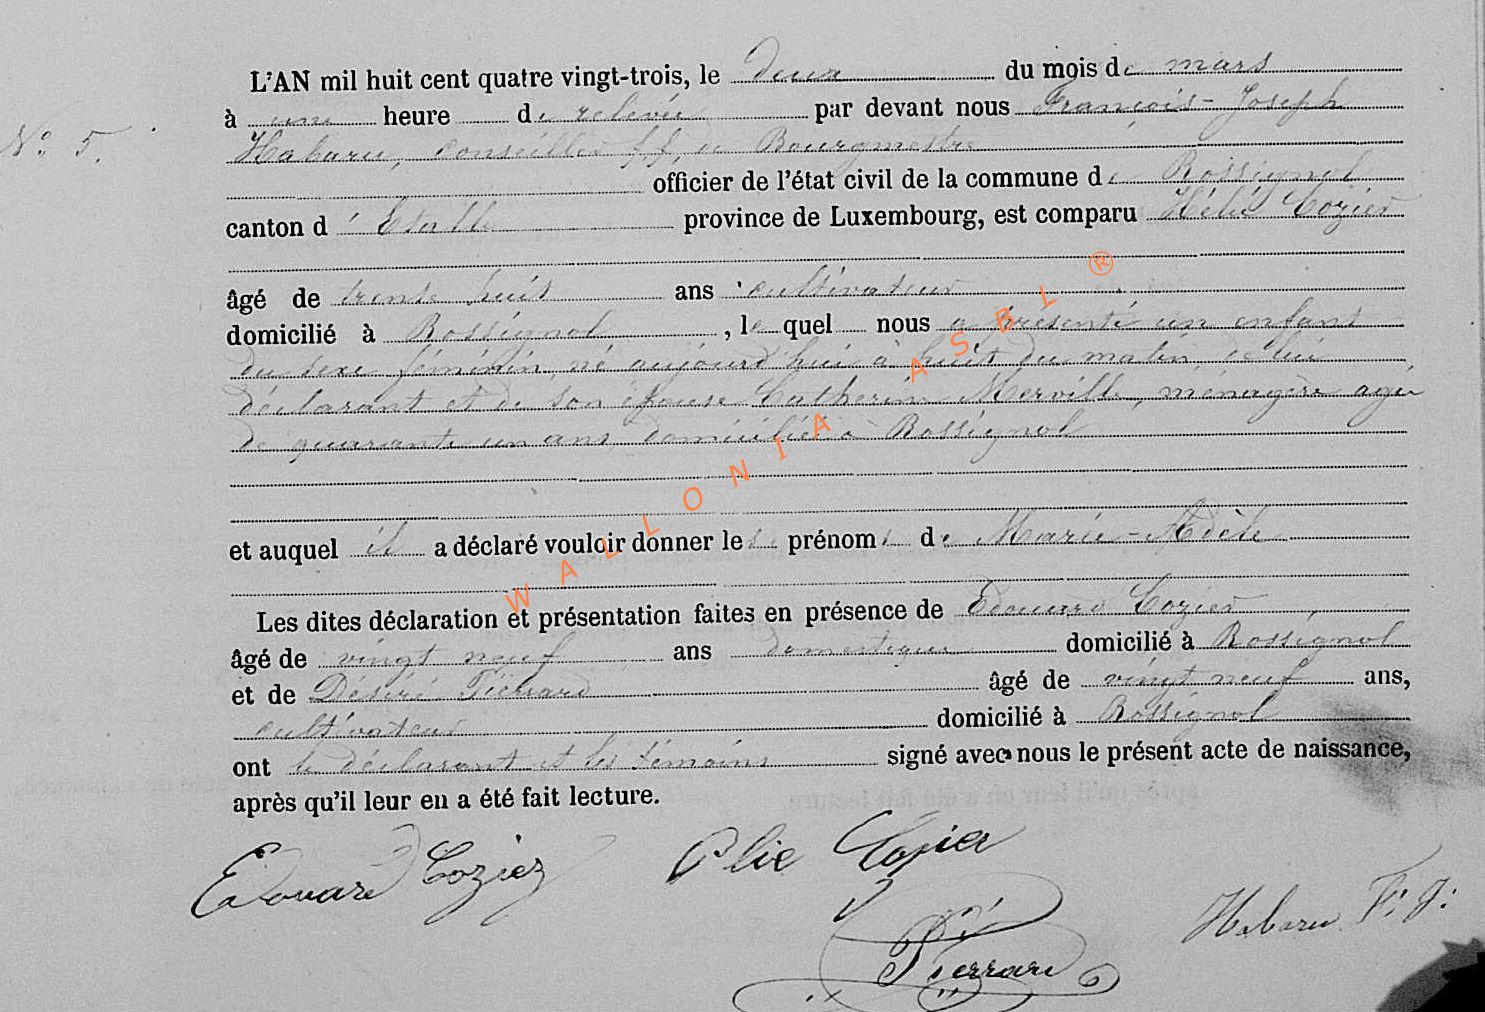 L'AN mil huit cent quatre vingt-trois, le deux du mois de mars
à une heure de relevée par devant nous François-Joseph
N° 5. Habaru, conseiller f.f. de Bourgmestre
officier de l'état civil de la commune de Rossignol
canton d'Etalle province de Luxembourg, est comparu Hélié Cozier
âgé de trente huit ans cultivateur
domicilié à Rossignol, lequel nous a présenté un enfant
du sexe féminin, né aujourd'hui à huit du matin de lui
déclarant et de son épouse Catherine Merville, ménagère agée
de quarante un ans domiciliée à Rossignol
et auquel il a déclaré vouloir donner les prénoms de Marie-Adèle
Les dites déclaration et présentation faites en présence de Edouard Cozier
âgé de vingt neuf ans domestique domicilié à Rossignol
et de Désiré Piérrard âgé de vingt neuf ans,
cultivateur domicilié à Rossignol
ont le déclarant et les témoins signé avec nous le présent acte de naissance,
après qu'il leur en a été fait lecture.
Edouard Coziez Elie Cozier
Habaru F. J.
Pierrard
WALLONIA ASBL ®